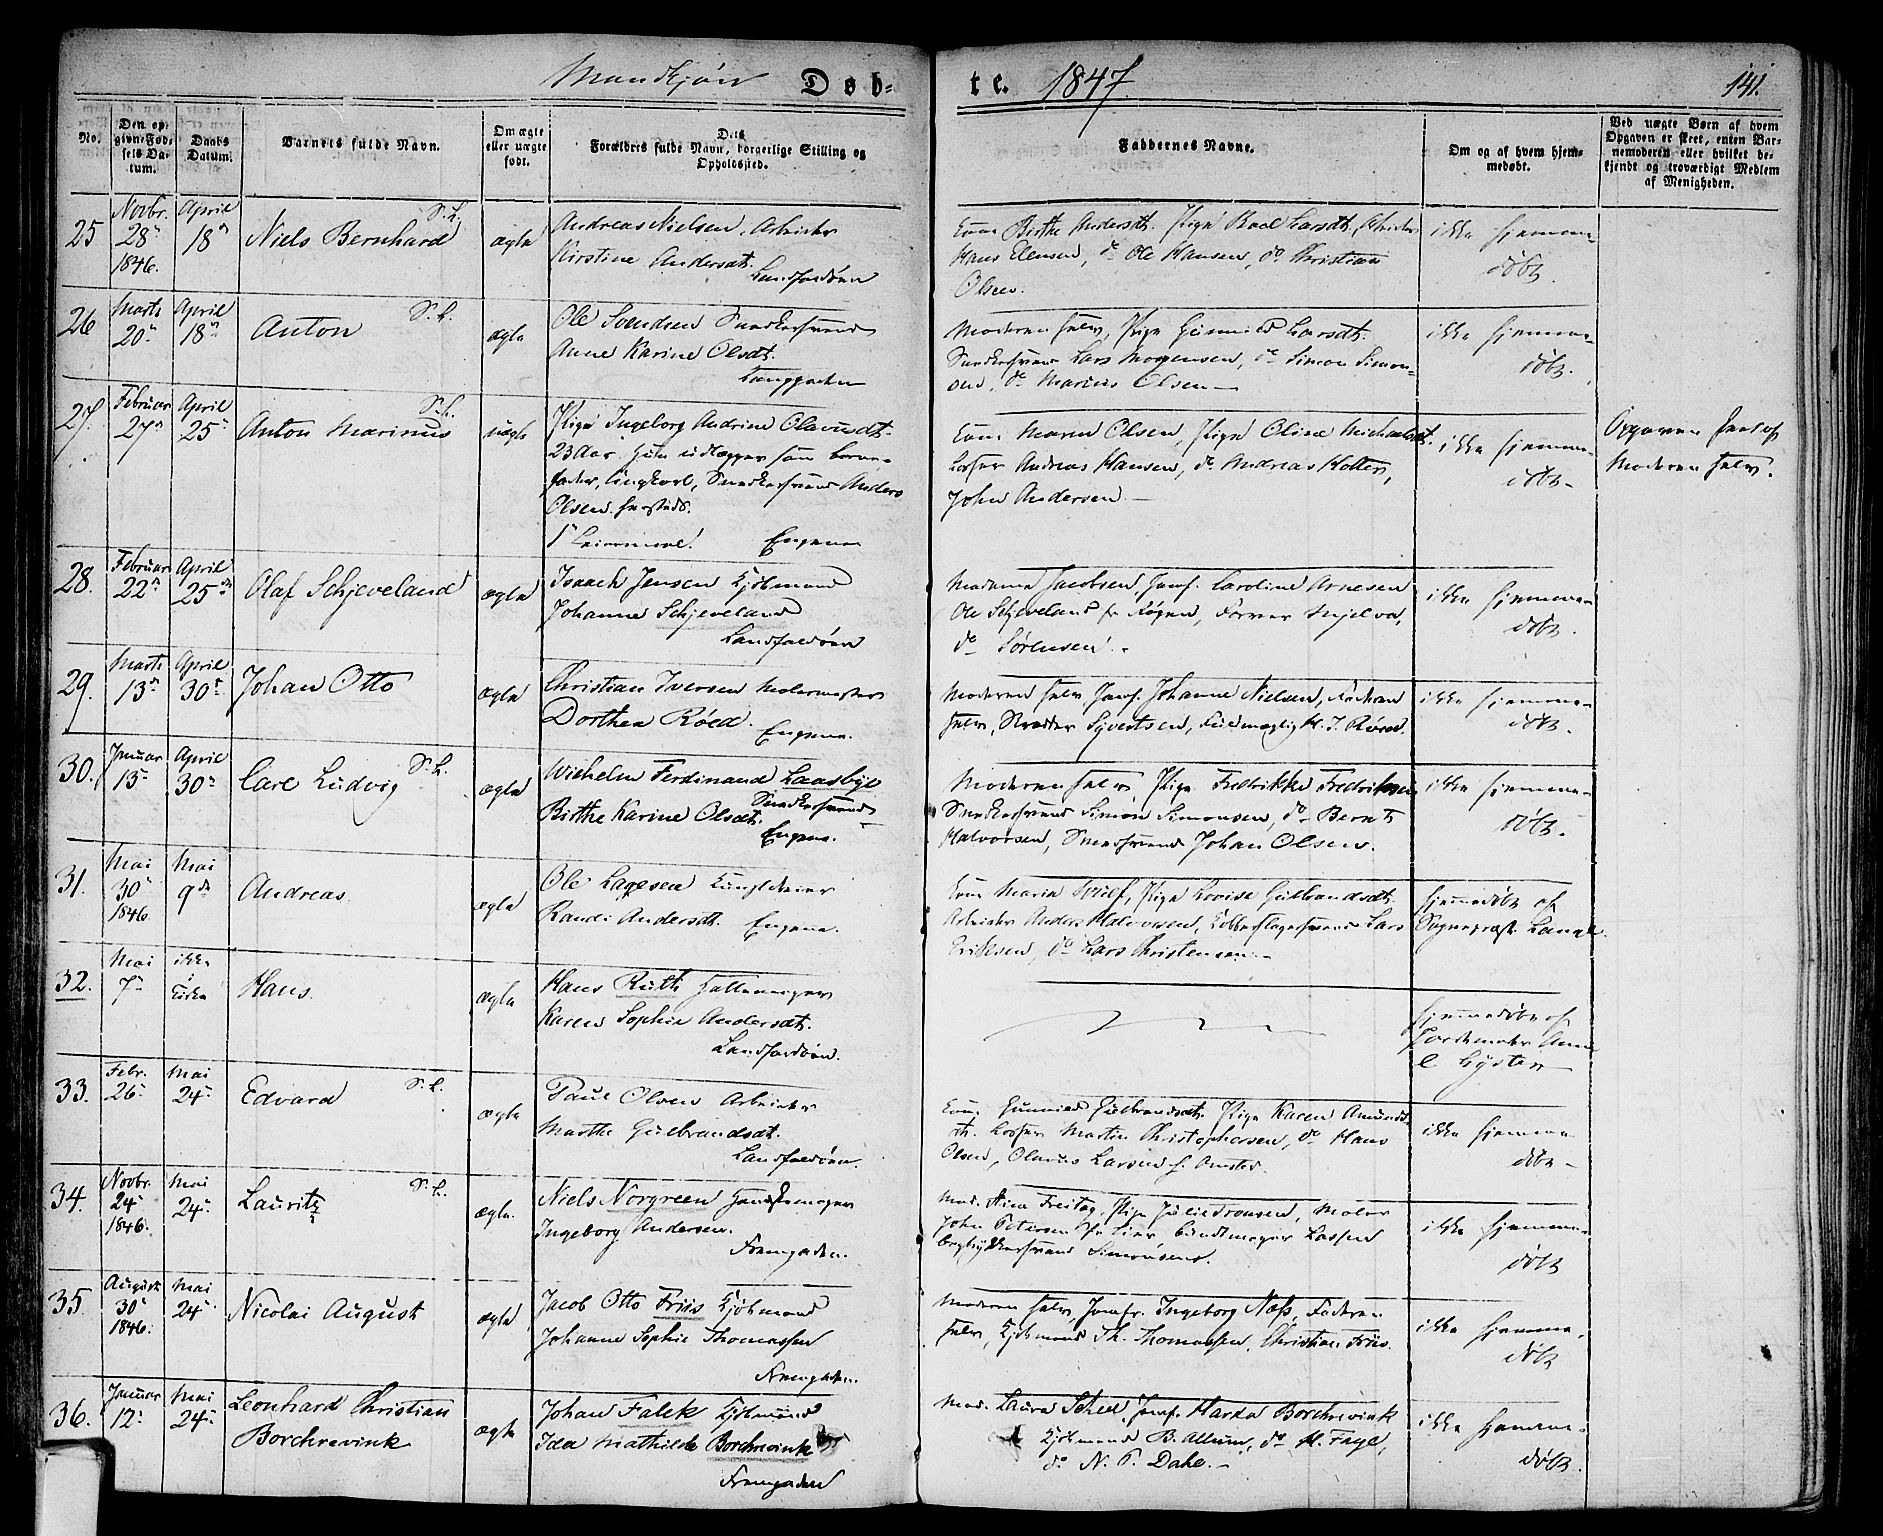 Mandkjön Döb-
te. 1847
141.
No.
Den op-
givne Fød-
sels Da-
tum.
Daabs
Datum.
Barnets fulde Navn.
Om ægte
eller uægte
født.
Dets
Forældres fulde Navn, borgerlige Stilling og
Opholdssted.
Faddernes Navne.
Om og af hvem hjem-
medøbt.
Ved uægte Børn af hvem
Opgaven er skeet, enten Bar-
nemoderen eller hvilket be-
kjendt og troværdigt Medlem
af Menigheden.
25
Novbr.
28
1846.
April
18
Niels Bernhard
ægte
Andreas Nielsen, Arbeider
Kirstine Andersdt.
Landfaldöen
Kone Birthe Andersdt. Pige Roel Larsdt, Arbeider
Hans Elensen, do Ole Hansen, do Christian
Olsen.
ikke hjemme-
döbt.
26
Marts
20
April
18
Anton
ægte
Ole Svendsen Snedkersvend
Anne Karine Olsdt.
Langgaden
Moderen selv, Pige Gunnild Larsdt.
Snedkersvend Lars Mogensen, do Simon Simon-
sen, do Marius Olsen
ikke hjemme-
döbt.
27.
Februar
27
April
25
Anton Marinus
uægte
Pige Ingeborg Andrine Olavusdt.
23 Aar. Hun udlægger som barne-
fader, Ungkarl, Snedkersvend Anders
Olsen
Engene
Kone Maren Olsen, Pige Oline Michelsdt.
Losser Andreas Hansen, do Andreas Holter,
John Andersen
ikke hjemme-
döbt.
Opgaven skeet af
Moderen selv.
28.
Februar
22
April
25
Olaf Schjeveland
ægte
Isaach Jensen Kjöbmand
Johanne Schjeveland
Landfaldöen
Madame Jacobsen, Jomf. Caroline Arnesen
Ole Schjeveland fr Røgen, Farver Mjelva,
do Sørensen.
ikke hjemme-
döbt.
29.
Marts
13
April
30
Johan Otto
ægte
Christian Iversen Malermester
Dorthea Röed.
Engene.
Moderen selv, Jomf. Johanne Nielsen, Faderen
selv, Skrædder Syvertsen, Fuldmægtig H. J. Röed.
ikke hjemme-
döbt.
30.
Januar
15
April
30
Carl Ludvig
ægte
Wilhelm Ferdinand Laasbye
Snedkersvend
Birthe Karine Olsdt.
Engene.
Moderen selv, Pige Fredrikke Fredriksen
Snedkersvend Simon Simonsen, do Bernt
Halvorsen, Smedsvend Johan Olsen.
ikke hjemme-
döbt.
31.
Mai
30
1846.
Mai
9de
Andreas.
ægte
Ole Lagesen
Randi Andersdt.
Engene.
Kone Maria Wulf, Pige Lovise Gulbrandsdt.
Arbeider Anders Halvorsen, Kobberslagersvend Lars
Eriksen, do Lars Christensen.
hjemmedöbt af
Sogneprest Lange.
32.
Mai
7
ikke
i
Kirke
Hans.
ægte
Hans Ruth
Karen Sophie Andersdt.
Landfaldöen.
hjemmedöbt af
Jordemoder Anne
C. Gysten
33.
Febr.
26
Mai
24
Edvard
ægte
Paul Olsen Arbeider
Marthe Gulbrandsdt.
Landfaldöen.
Kone Gunnild Gulbrandsdt. Pige Karen Amunds-
dt. Losser Martin Christophersen, do Hans
Olsen, Olavus Larsen
ikke hjemme-
döbt
34.
Novbr.
24
1846.
Mai
24
Lauritz
ægte.
Niels Norgreen Handskemager
Ingeborg Andersen.
Fremgaden.
Mad. Aina Freitag, Pige Julie Tronsen, Maler
John Petersen fr Lier, Bundtmager Lassen
Simonsen.
ikke hjemme-
döbt
35.
August
30
1846.
Mai
24
Nicolai August
ægte
Jacob Otto Friis Kjöbmand
Johanne Sophie Thomassen
Fremgaden.
Moderen selv, Jomfr. Ingeborg Næss, Faderen
selv, Kjöbmand Th. Thomassen, Christian Friis.
ikke hjemme-
döbt
36.
Januar
12
Mai
24
Leonhard Christian
Borchrevink
ægte
Johan Falck Kjöbmand
Ida Mathilde Borchrevink
Fremgaden
Mad. Laura Scheel, Jomf. Marda Borchrevink
Kjöbmand B. Allum, do H. Faye,
do N. P. Dahl.
ikke hjemme-
döbt.